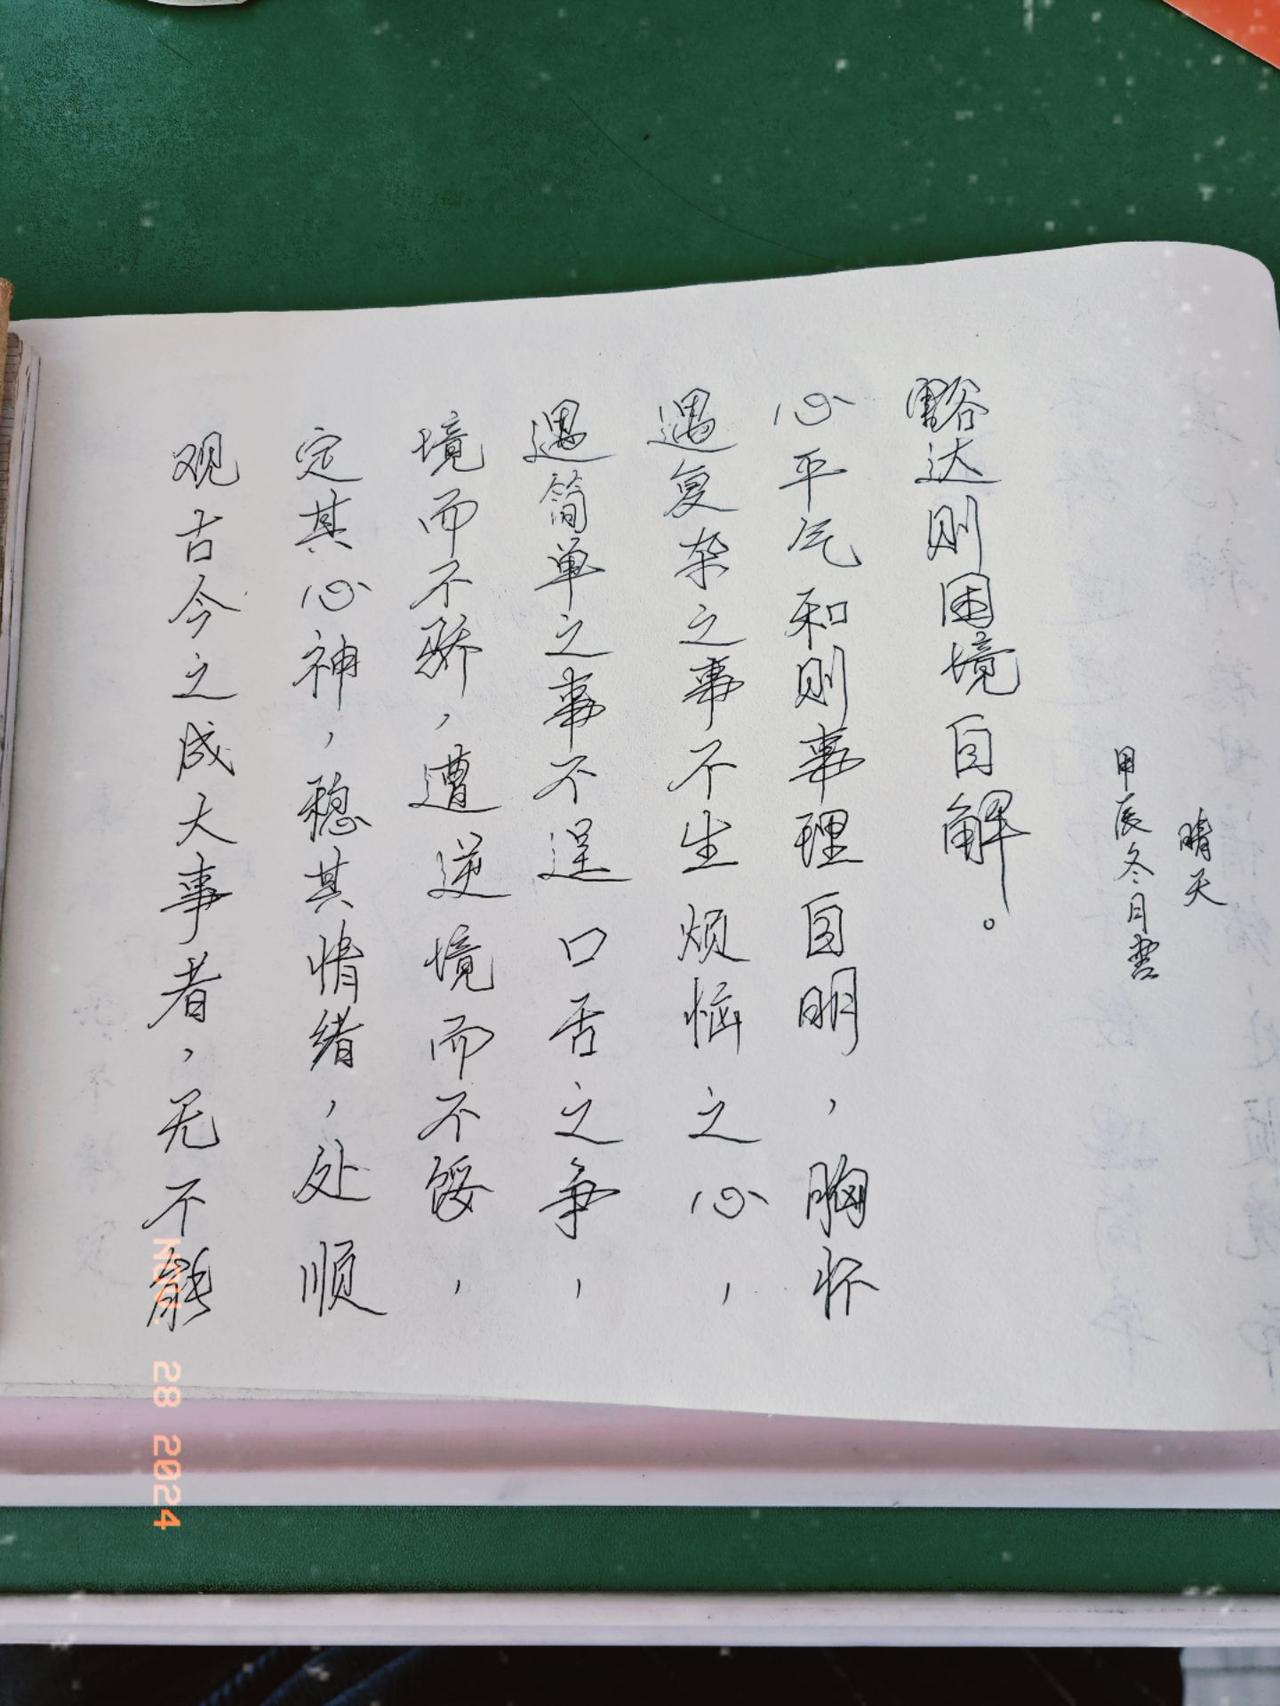 观古今之成大事者，无不能
定其心神，稳其情绪，处顺
境而不骄，遭逆境而不馁，
遇简单之事不逞口舌之争，
遇复杂之事不生烦恼之心，
心平气和则事理自明，胸怀
豁达则困境自解。
甲辰冬月
晴天
NOV. 28 2024